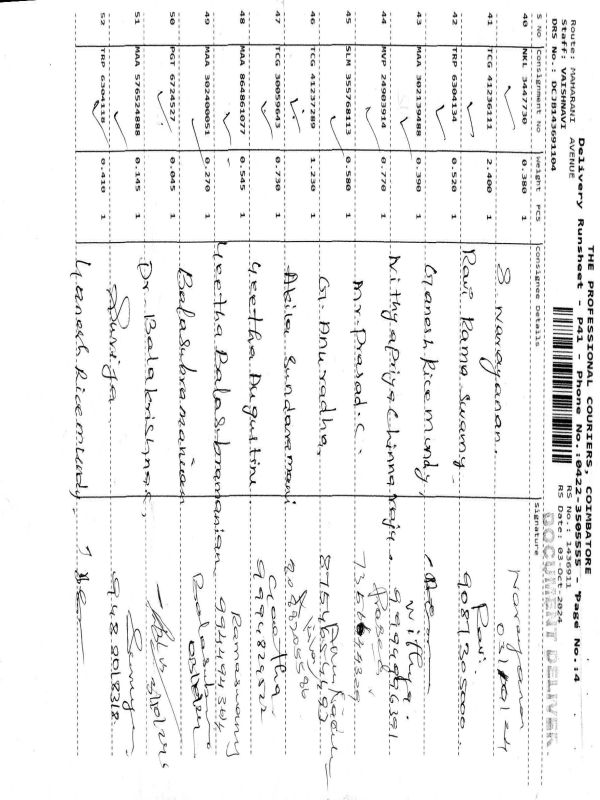 THE PROFESSIONAL COURIERS, COIMBATORE
Delivery Runsheet - P41 - Phone No.:0422-3505555 - Page No.:4
Route: MAHARANI AVENUE
Staff: VAISHNAVI
RS No.: 1436911
DRS No.: DCJB143691104
RS Date: 03-Oct-2024
DOCUMENT DELIVER
S No Consignment No Weight PCS Consignee Details Signature
40 NKL 3447730 0.380 1 S. Narayanan. Narayanan 03/10/24
41 TCG 41236111 2.400 1 Ravi Rama Swamy Ravi 9087305000.
42 TRP 6304134 0.520 1 Ganesh Rice Mundy,
43 MAA 302139488 0.390 1 Nithyapriya Chinnaraju. Nithya. 9999996391
44 MVP 24903914 0.770 1 Mr. Prasad. C. Prasad
45 SLM 355768113 0.580 1 G. Anuradha,
46 TCG 41237289 1.230 1 Akila Sundaramani
47 TCG 30059643 0.730 1 Geetha Augustine Geetha. 9994829522
48 MAA 864861077 0.545 1 Geetha Balasubramanian Ramaswamy 994494364
49 MAA 302400051 0.270 1 Balasubramaniam
50 PGT 6724527 0.045 1 Dr. Balakrishnan,
51 MAA 576524888 0.145 1 Suriya 9488018318.
52 TRP 6304118 0.410 1 Ganesh Rice Mundy,